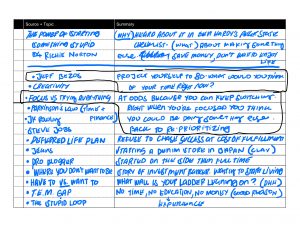 Source + Topic
Summary
THE POWER OF STARTING
(WHY) HEARD ABOUT IT IN OWN HARDY'S PEAK STATE
SOMETHING STUPID
CHECKLIST. (WHAT) ABOUT MAKING SOMETHING
BY RICHIE NORTON
ELSE MONEY, DON'T WAIT TO ENJOY LIFE
• JEFF BEZOS
PROJECT YOURSELF TO 80. WHAT WOULD YOU THINK
• CREATIVITY
OF YOUR TIME RIGHT NOW?
• FOCUS VS TRYING EVERYTHING
AT ODDS, BECAUSE YOU CAN KEEP SWITCHING
• PARKINSON'S LAW (TIME +
RIGHT WHEN YOU'RE FOCUSED YOU THINK
JK ROWLING FINANCE)
YOU COULD BE DOING SOMETHING ELSE.
STEVE JOBS
BACK TO RE-PRIORITIZING
• DEFERRED LIFE PLAN
REFUSE TO CHASE SUCCESS AT COST OF FULFILLMENT
• JEANS
STARTING A DENIM STORE IN JAPAN (CLAY)
• PRO BLOGGER
STARTED ON THE SIDE THEN FULL TIME
• WHERE YOU DON'T WANT TO BE
STORY OF INVESTMENT BANKER WAITING TO START LIVING
• HAVE TO VS WANT TO
WHAT WALL IS YOUR LADDER LEANING ON?
• T.E.M. GAP
NO TIME, NO EDUCATION, NO MONEY
• THE STUPID LOOP